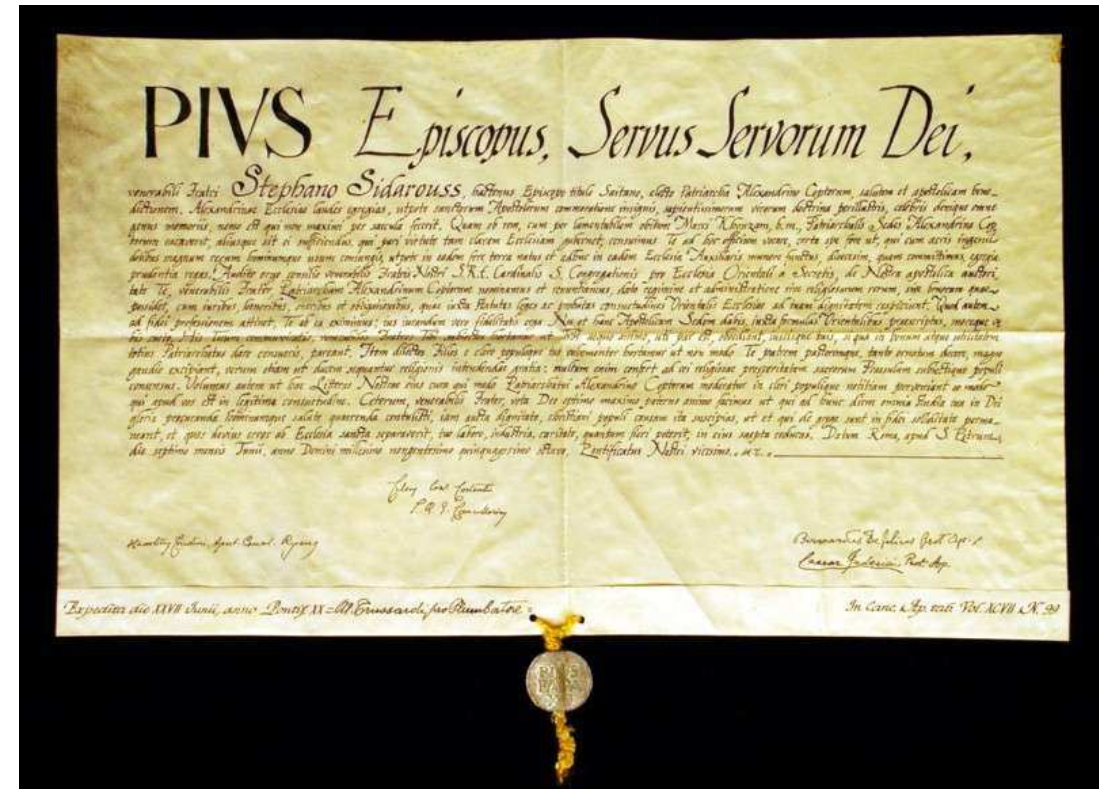 PIVS Episcopus, Servus Servorum Dei,
venerabili Fratri Stephano Sidarouss, hactenus Episcopo titulo Saitano, electo Patriarchae Alexandrino Coptorum, salutem et apostolicam bene-
dictionem. Alexandrinae Ecclesiae laudes egregias, utpote sanctorum Apostolorum commoratione insignis, sapientissimorum virorum doctrina perillustris, celebris denique omne
genus memoriis, nemo est qui non maximi per saecula fecerit. Quam ob rem, cum per lamentabilem obitum Marci Khouzam, b.m., Patriarchalis Sedes Alexandrina Cop-
torum vacaverit, aliusque sit ei sufficiendus, qui pari virtute tam claram Ecclesiam gubernet, censuimus Te ad hoc officium vocare, certa spe fore ut, qui cum acris ingenii
dotibus magnum rerum hominumque usum coniungis, utpote in eadem fere terra natus et adhuc in eadem Ecclesia Auxiliaris munere functus, dioecesim, quam committimus, egregia
prudentia regas. Audito ergo consilio venerabilis Fratris Nostri S.R.E. Cardinalis S. Congregationis pro Ecclesia Orientali a Secretis, de Nostra apostolica auctori-
tate Te, venerabilis Frater, Patriarcham Alexandrinum Coptorum nominamus et renuntiamus, dato regimine et administratione sive religiosarum rerum, sive bonorum quae
possidet, cum iuribus, honoribus, oneribus et obligationibus, quae iuxta statutas leges ac probatas consuetudines Orientalis Ecclesiae ad tuam dignitatem respiciunt. Quod autem
ad fidei professionem attinet, Te ab ea eximimus; ius iurandum vero fidelitatis erga Nos et hanc Apostolicam Sedem dabis, iuxta formulas Orientalibus praescriptas,
aequo animo, uti par est, obediant, iussisque tuis, si qua in bonum atque utilitatem
totius Patriarchatus dare censueris, pareant. Item dilectos Filios e clero populoque tuo vehementer hortamur ut non modo Te patrem pastoremque, tanto ornatum decore, magno
gaudio excipiant, verum etiam ut ducem sequantur religionis intendendae gratia: multum enim confert ad rei religiosae prosperitatem sacrorum Praesulum subiectique populi
consensus. Volumus autem ut hae Litterae Nostrae eius cura qui modo Patriarchatui Alexandrino Coptorum moderatur in cleri populique notitiam perveniant eo modo
qui apud vos est in legitima consuetudine. Ceterum, venerabilis Frater, vota Deo optimo maximo paterno animo facimus ut qui ad hunc diem omnia studia tua in Dei
gloria procuranda hominumque salute quaerenda contulisti, iam aucta dignitate, christiani populi causam ita suscipias, ut et qui de grege sunt in fidei soliditate perma-
neant, et quos devius error ab Ecclesia sancta separaverit, tuo labore, industria, caritate, quantum fieri poterit, in eius saepta reducas. Datum Romae, apud S. Petrum,
die septimo mensis Iunii, anno Domini millesimo nongentesimo quinquagesimo octavo, Pontificatus Nostri vicesimo.
Apost. Cancel.
Prot. Ap.
Caesar Federici Prot. Ap.
Expedita die XXVII Iunii, anno Pontif. XX = M. Trussardi pro Plumbatore =
In Canc. Ap. tab. Vol. XCVII N. 99
PIVS
PAPA